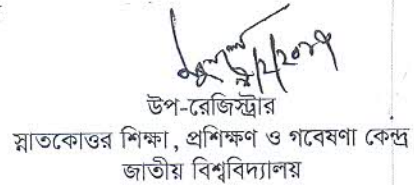 উপ-রেজিস্ট্রার
স্নাতকোত্তর শিক্ষা, প্রশিক্ষণ ও গবেষণা কেন্দ্র
জাতীয় বিশ্ববিদ্যালয়